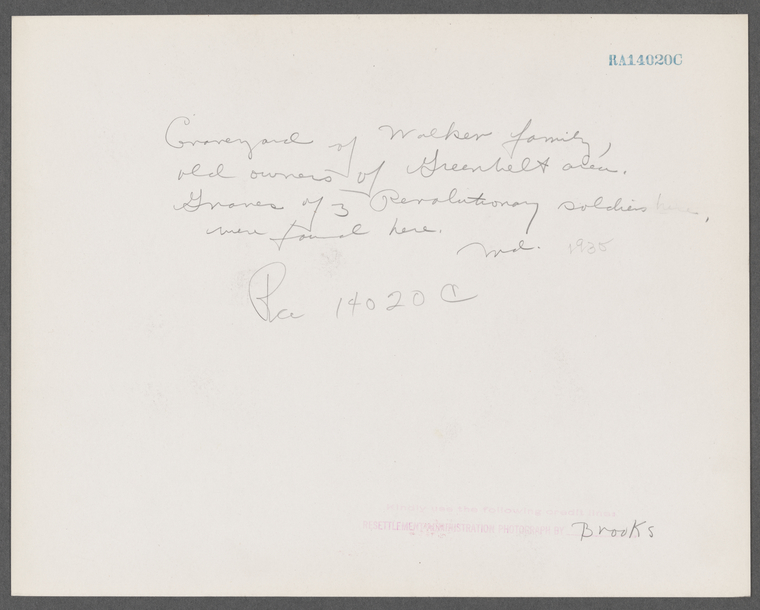 RA14020C
Graveyard of Walker family,
old owners of Greenbelt area.
Graves of 3 Revolutionary soldiers here,
were found here.
Md. 1935
Ra 14020 C
the following credit line
RESETTLEMENT ADMINISTRATION PHOTOGRAPH BY Brooks